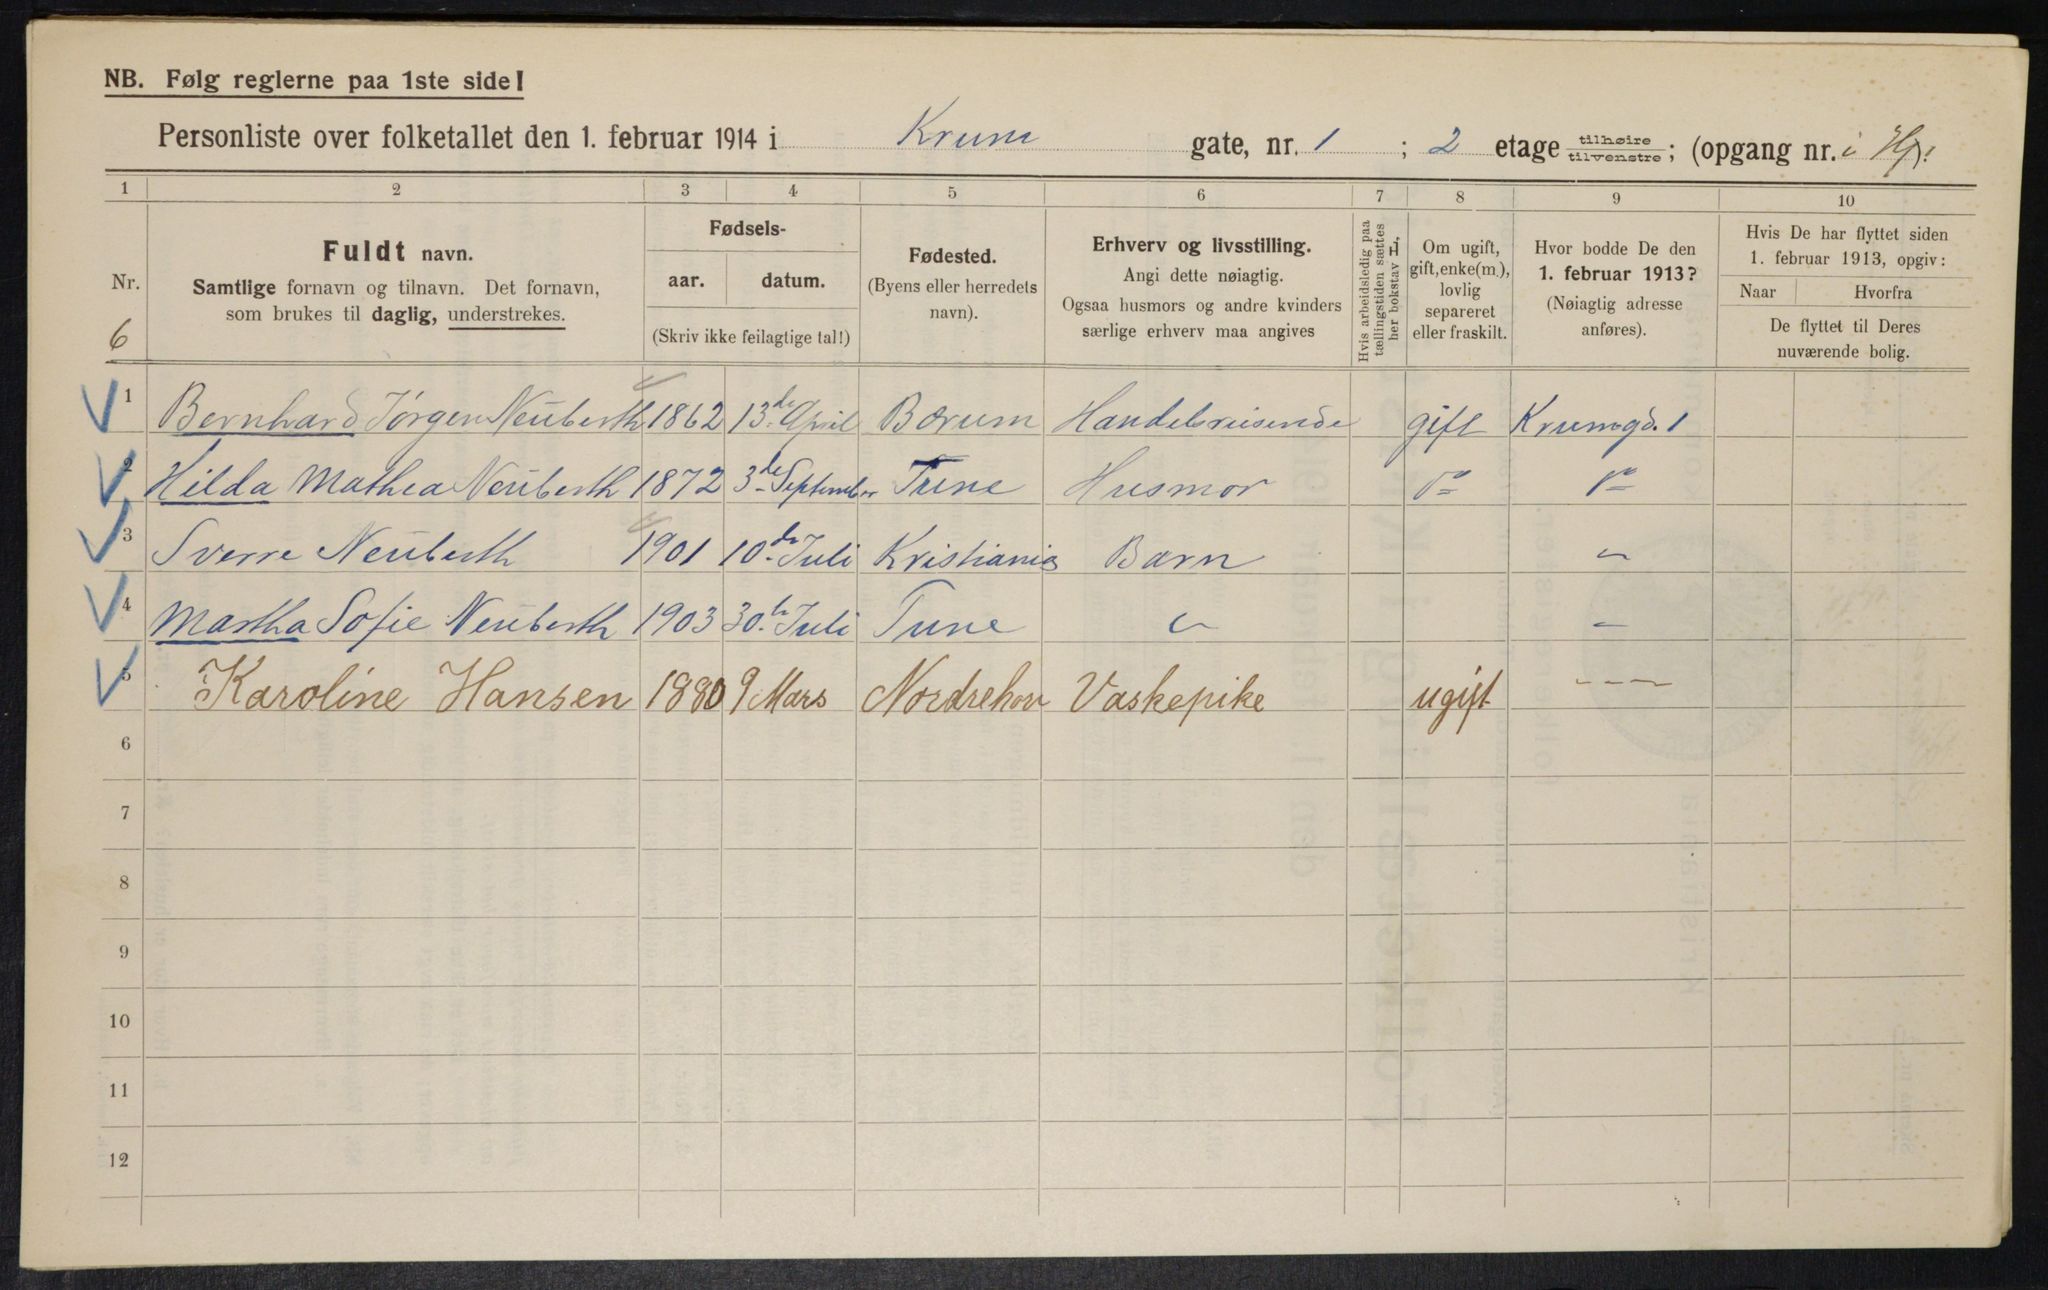 NB. Følg reglerne paa 1ste side!
Personliste over folketallet den 1. februar 1914 i Krum gate, nr. 1 ; 2 etage tilhøire tilvenstre; (opgang nr. i
1 2 3 4 5 6 7 8 9 10
Nr.
6
Fuldt navn.
Samtlige fornavn og tilnavn. Det fornavn,
som brukes til daglig, understrekes.
Fødsels-
aar. datum.
(Skriv ikke feilagtige tal!)
Fødested.
(Byens eller herredets
navn).
Erhverv og livsstilling.
Angi dette nøiagtig.
Ogsaa husmors og andre kvinders
særlige erhverv maa angives
Hvis arbeidsledig paa
tællingstiden sættes
her bokstav H,
Om ugift,
gift, enke(m.),
lovlig
separeret
eller fraskilt.
Hvor bodde De den
1. februar 1913?
(Nøiagtig adresse
anføres).
Hvis De har flyttet siden
1. februar 1913, opgiv:
Naar Hvorfra
De flyttet til Deres
nuværende bolig.
1 Bernhard Jørgen Neüberth 1862 13de April Bærum Handelsreisende gift Krumgd. 1
2 Hilda Mathea Neüberth 1872 3de September Tune Husmor do do
3 Sverre Neüberth 1901 10de Juli Kristiania Barn "
4 Martha Sofie Neüberth 1903 30te Juli Tune " "
5 Karoline Hansen 1880 9 Mars Nordrehov Vaskepike ugift ---
6
7
8
9
10
11
12